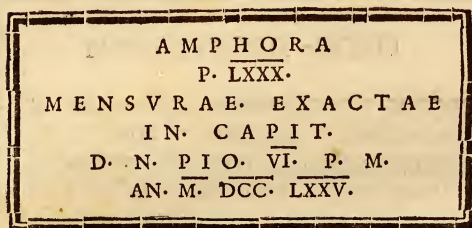 AMPHORA
P· L̅X̅X̅X̅·
MENSVRAE· EXACTAE
IN· CAPIT·
D· N· PIO· V̅I̅· P· M·
AN· M̅· D̅C̅C̅· L̅X̅X̅V̅·